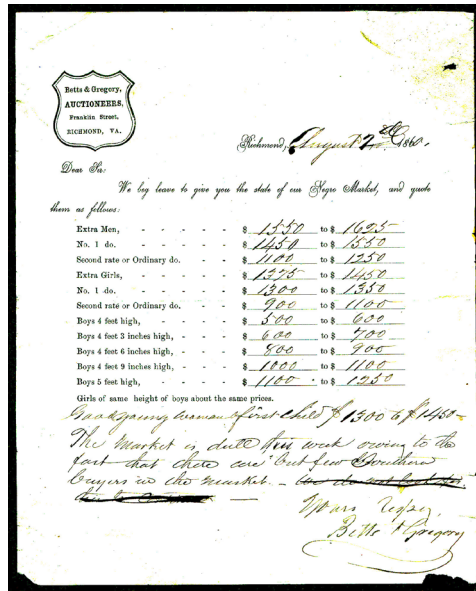 Betts & Gregory,
AUCTIONEERS,
Franklin Street,
RICHMOND, VA.
Richmond, August 2d 1860.
Dear Sir:
We beg leave to give you the state of our Negro Market, and quote
them as follows:
Extra Men, - - - - - $ 1550 to $ 1625
No. 1 do. - - - - - $ 1450 to $ 1550
Second rate or Ordinary do. - - - $ 1100 to $ 1250
Extra Girls, - - - - - $ 1375 to $ 1450
No. 1 do. - - - - - $ 1300 to $ 1350
Second rate or Ordinary do. - - - $ 900 to $ 1100
Boys 4 feet high, - - - - $ 500 to $ 600
Boys 4 feet 3 inches high, - - - $ 600 to $ 700
Boys 4 feet 6 inches high, - - - $ 800 to $ 900
Boys 4 feet 9 inches high, - - - $ 1000 to $ 1100
Boys 5 feet high, - - - - $ 1100 to $ 1250
Girls of same height of boys about the same prices.
Good young woman & first child $ 1300 to $ 1450
The market is dull this week owing to the
fact that there are but few Southern
buyers in the market.
Yours
Betts & Gregory